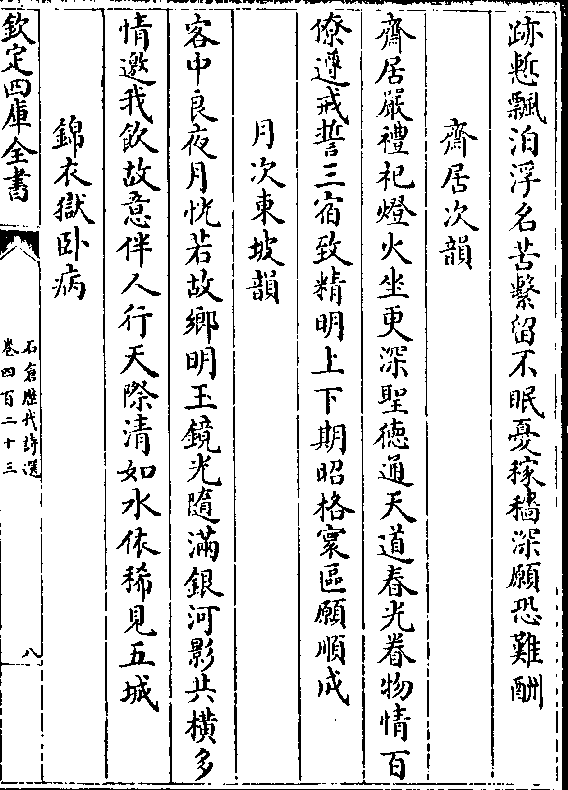 跡慙飄泊浮名苦繫留不眠憂稼穡深願恐難酬
齋居次韻
齋居嚴禮祀燈火坐更深聖德通天道春光眷物情百
僚遵戒誓三宿致精明上下期昭格寰區願順成
月次東坡韻
客中良夜月恍若故鄉明玉鏡光隨滿銀河影共橫多
情邀我飲故意伴人行天際清如水依稀見五城
錦衣獄卧病
欽定四庫全書
石倉歷代詩選
卷四百二十三
八